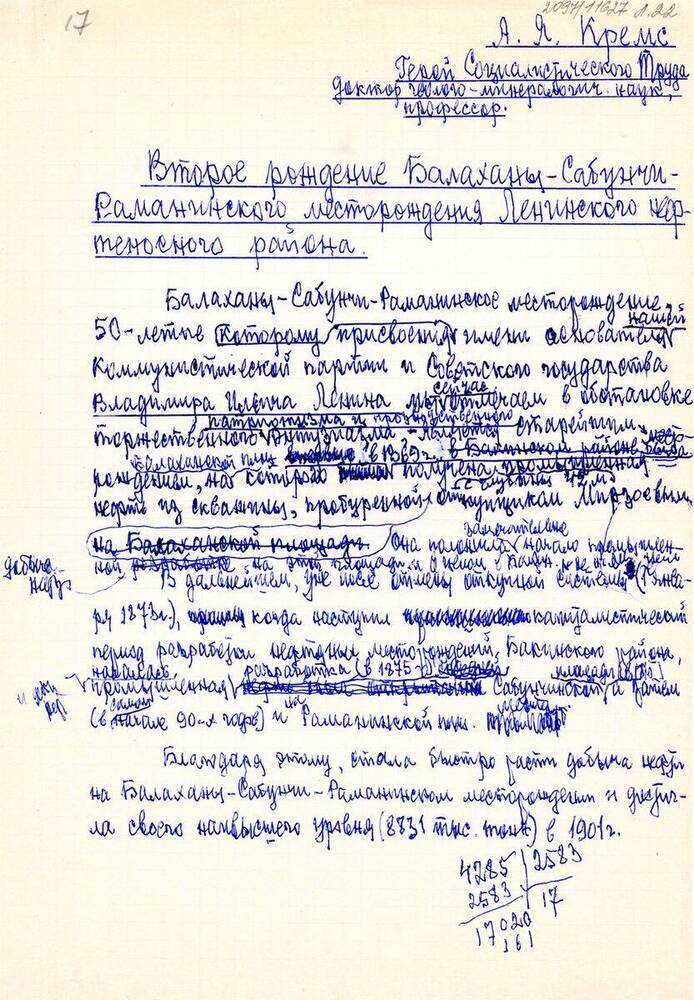 17
2094/11627 л.22
А. Я. Кремс
Герой Социалистического Труда
доктор геолого-минералогич. наук,
профессор.
Второе рождение Балаханы-Сабунчи-
Раманинского месторождения Ленинского неф-
теносного района.
Балаханы-Сабунчи-Раманинское месторождение,
нашей
50-летие которому присвоения имени основателя
Коммунистической партии и Советского государства
сейчас
Владимира Ильича Ленина мы отмечаем в обстановке
патриотизма и производственного
торжественного энтузиазма является старейшим
в 1869г. в Бакинском районе
Балаханской площ.
рождении, на которого получена промышленная
с глубины м
нефть из скважины, пробуренной купцом Мирзоевым
на Балаханской площади. Она положила начало промышлен-
замечательное
добыча
нефт
ной разработке на этой площади и в целом в
В дальнейшем, уже после отмены откупной системы (1 янва-
ря 1873г.), когда наступил капиталистический
период разработки нефтяных месторождений Бакинского района,
началась разработка (в 1875 г) площадей
промышленная Сабунчинской, а затем
(в начале 90-х годов) и на Раманинской площ.
Благодаря этому, стала быстро расти добыча нефти
на Балаханы-Сабунчи-Раманинском месторождении и достиг-
ла своего наивысшего уровня (8831 тыс. тонн) в 1901г.
4285 2583
2583 17
17020
161